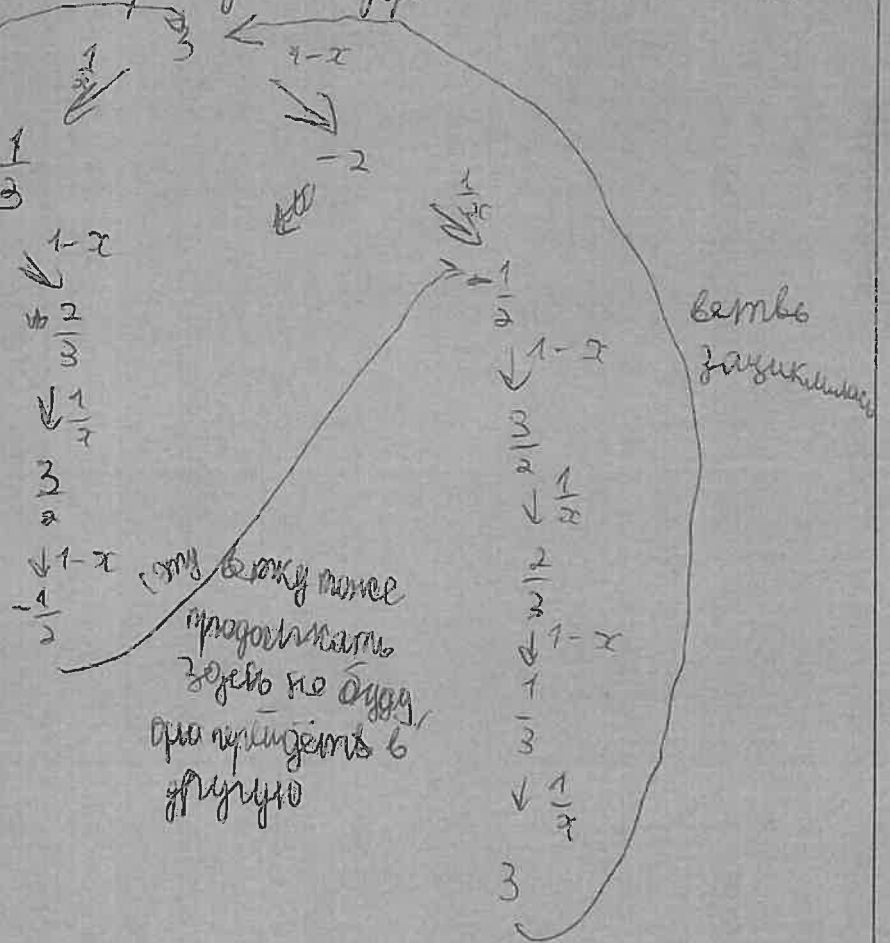 3
1/x
1-x
1/3
-2
1-x
1/x
2/3
-1/2
1/x
1-x
3/2
3/2
1-x
1/x
-1/2
2/3
1-x
1/3
1/x
3
ветвь
зациклилась
эту ветку тоже
продолжать
здесь не буду,
она перейдёт в
другую